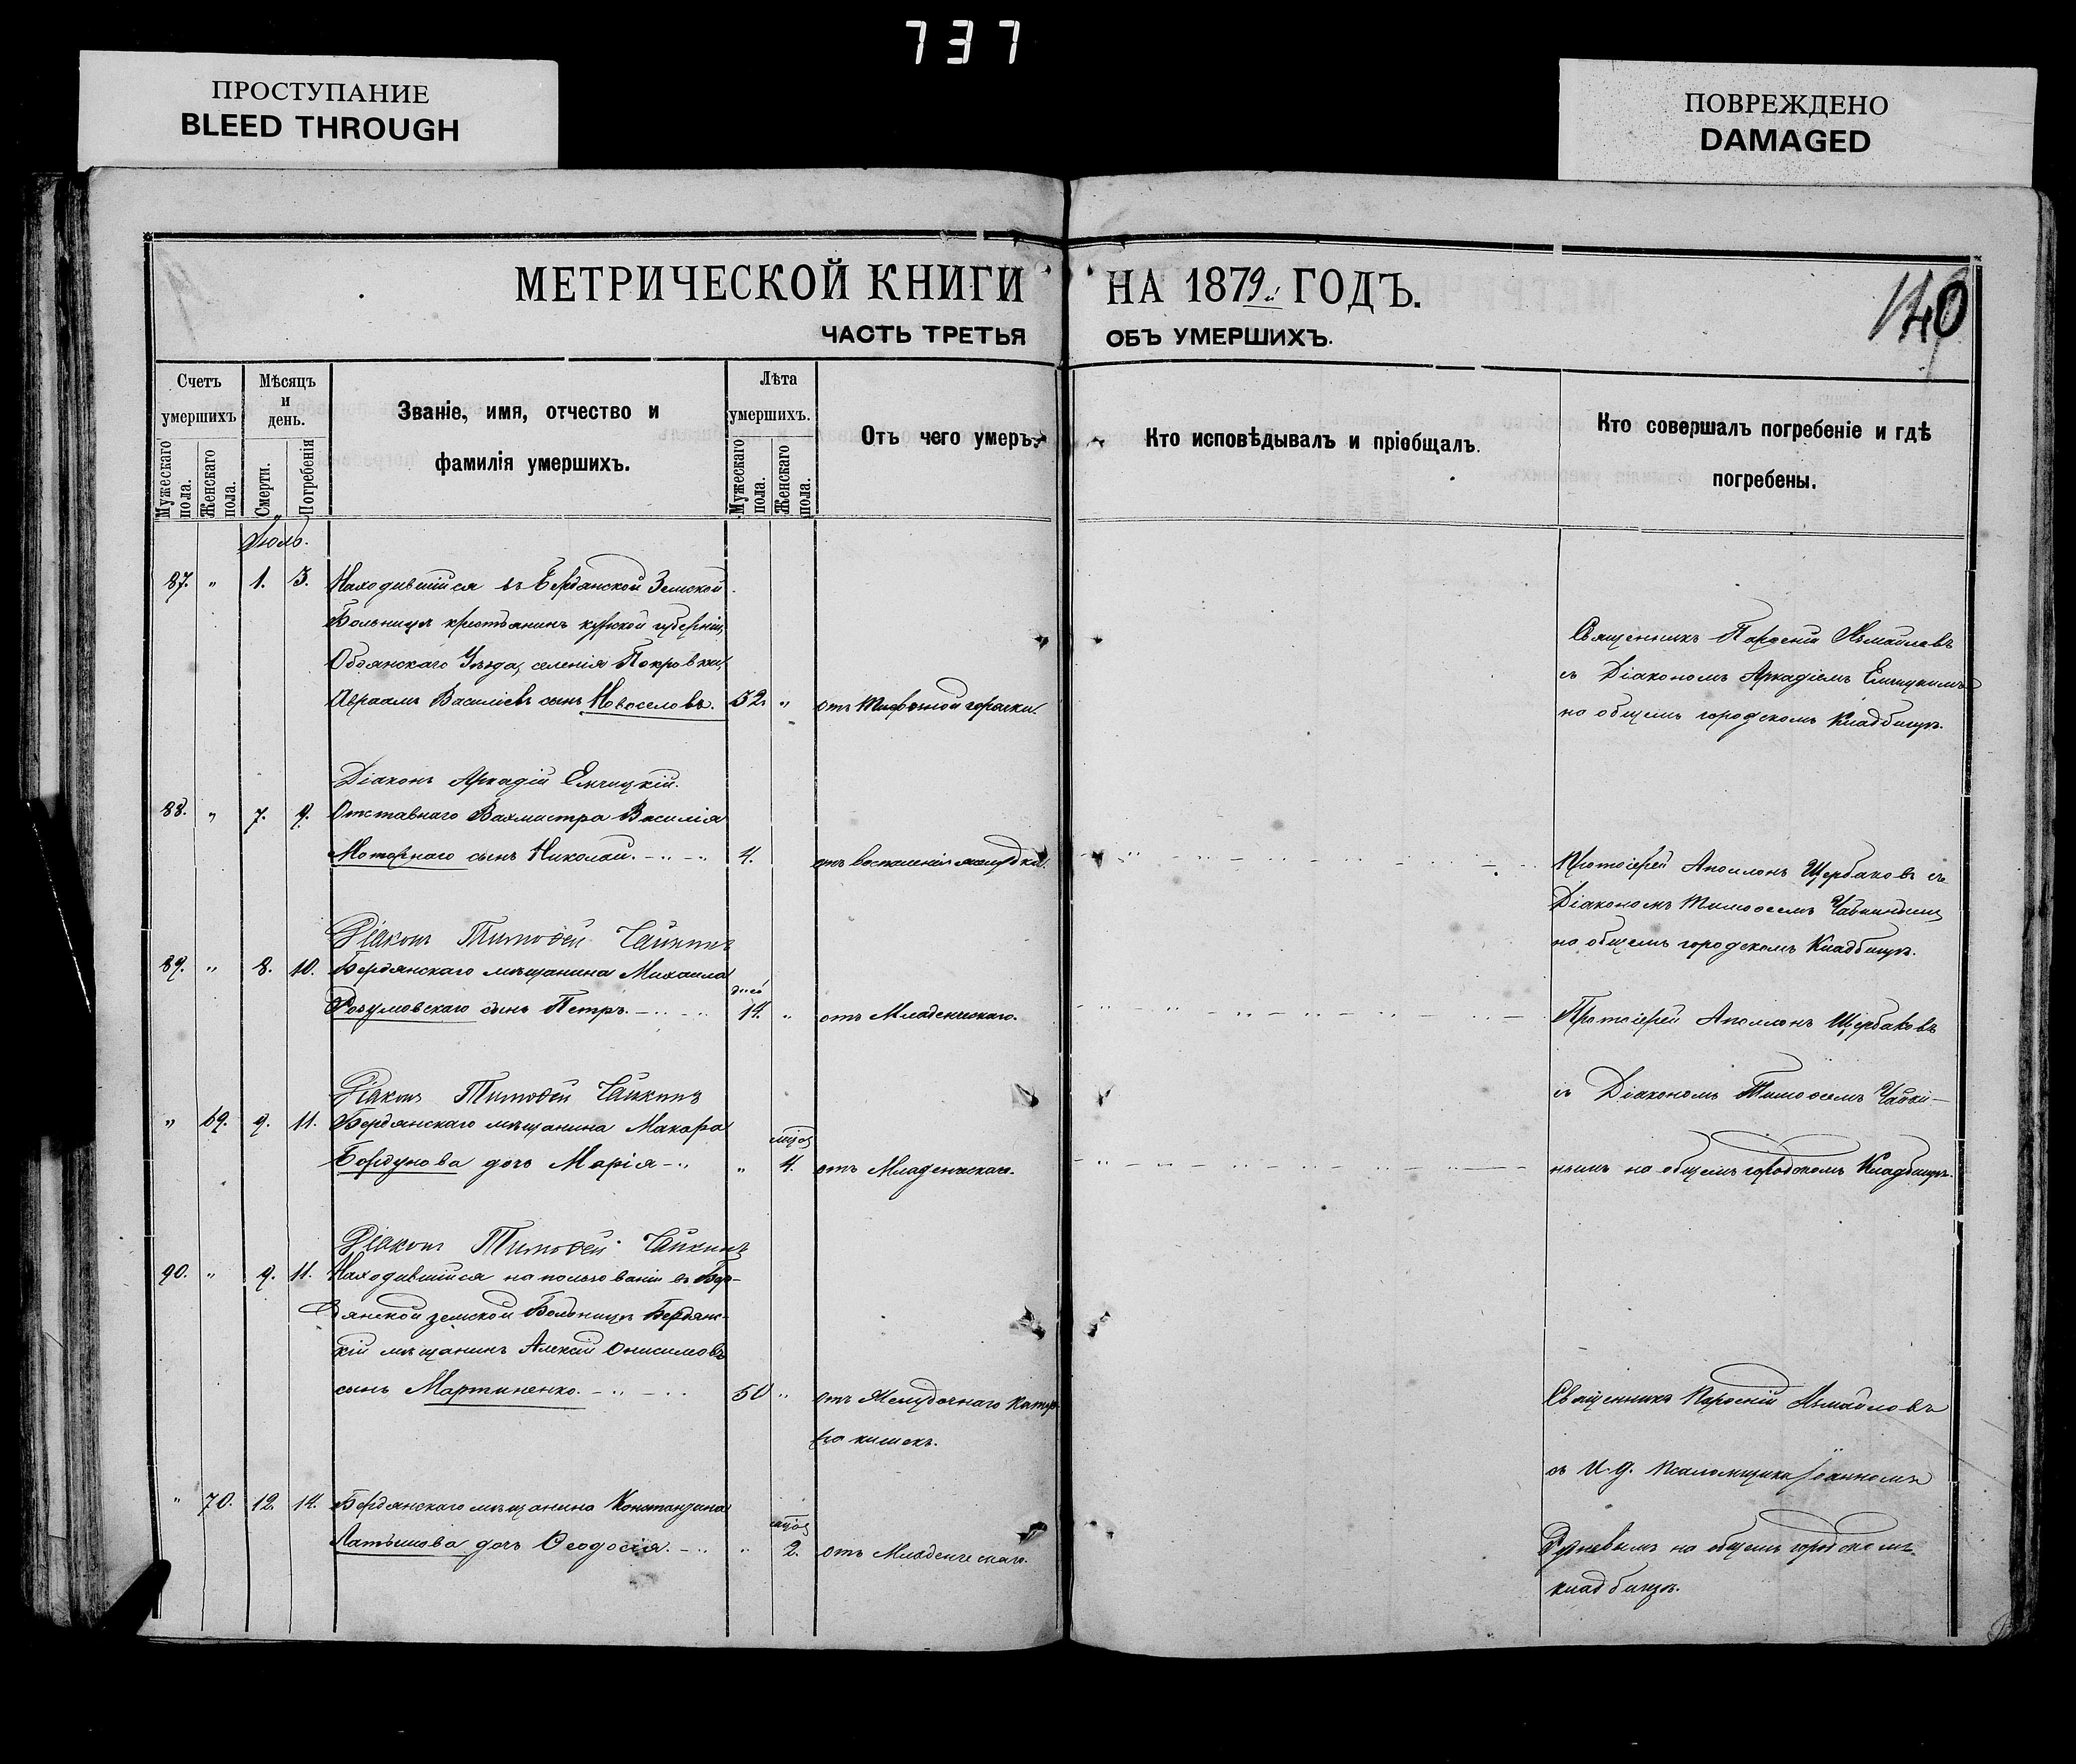 737
ПРОСТУПАНИЕ
BLEED THROUGH
ПОВРЕЖДЕНО
DAMAGED
МЕТРИЧЕСКОЙ КНИГИ НА 1879 ГОДЪ.
140
ЧАСТЬ ТРЕТЬЯ ОБЪ УМЕРШИХЪ.
Счетъ умершихъ
Мужескаго пола.
Женскаго пола.
Мѣсяцъ и день.
Смерти.
Погребенія
Званіе, имя, отчество и
фамилія умершихъ.
Лѣта умершихъ.
Мужескаго пола.
Женскаго пола.
Отъ чего умеръ.
Кто исповѣдывалъ и пріобщалъ.
Кто совершалъ погребеніе и гдѣ
погребены.
Іюль.
87. " 1. 3. Находившійся въ Бердянской Земской
Больницѣ крестьянинъ курской губерніи,
Обоянскаго Уѣзда, селенія Покровки,
Авраамъ Василіевъ сынъ Новоселовъ. 52. " отъ Тифозной горячки.
Священникъ Парѳеній Измаиловъ
съ Діакономъ Аркадіемъ
на общемъ городскомъ Кладбищѣ.
Діаконъ Аркадій
88. " 7. 9. Отставнаго Вахмистра Василія
Моторнаго сынъ Николай. 4. отъ воспаленія желудка.
Протоіерей Аполлонъ Щербаковъ съ
Діакономъ Тимоѳеемъ Чайкинымъ
на общемъ городскомъ Кладбищѣ.
Діаконъ Тимоѳей Чайкинъ
89. " 8. 10. Бердянскаго мѣщанина Михаила
дней
Розумовскаго сынъ Петръ. 14. " отъ Младенческаго.
Протоіерей Аполлонъ Щербаковъ
Діаконъ Тимоѳей Чайкинъ
съ Діакономъ Тимоѳеемъ Чайки-
" 69. 9. 11. Бердянскаго мѣщанина Макара
Бордунова дочь Марія " 4. отъ Младенческаго.
нымъ на общемъ городскомъ Кладбищѣ.
Діаконъ Тимоѳей Чайкинъ
90. " 9. 11. Находившійся на пользованіи въ Бер-
дянской земской Больницѣ Бердянс-
кій мѣщанинъ Алексій Онисимовъ
сынъ Мартиненко. 50 " отъ Желудочнаго
кишекъ.
Священникъ Парѳеній Измаиловъ
съ И. д. Псаломщика Іоанномъ
" 70. 12. 14. Бердянскаго мѣщанина Константина
Латышова дочь Ѳеодосія. " 2. отъ Младенческаго.
на общемъ городскомъ
кладбищѣ.